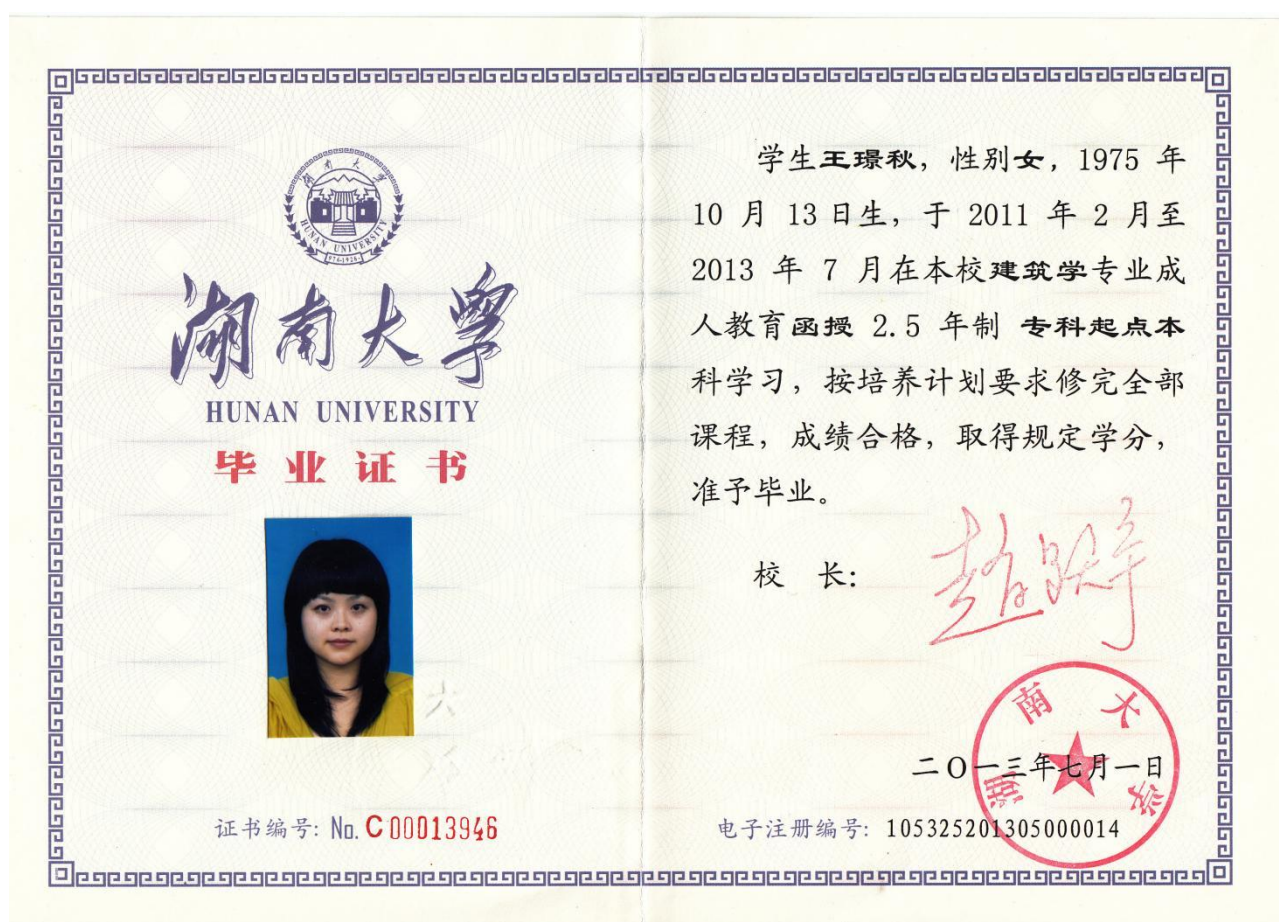 湖南大学
HUNAN UNIVERSITY
976-1926
湖南大学
HUNAN UNIVERSITY
毕业证书
证书编号: No. C 00013946
学生王璟秋，性别女，1975 年
10 月 13日生，于 2011 年 2 月至
2013 年 7 月在本校建筑学专业成
人教育函授 2.5 年制 专科起点本
科学习，按培养计划要求修完全部
课程，成绩合格，取得规定学分，
准予毕业。
校 长:
赵跃宇
湖南大学
二〇一三年七月一日
电子注册编号: 105325201305000014